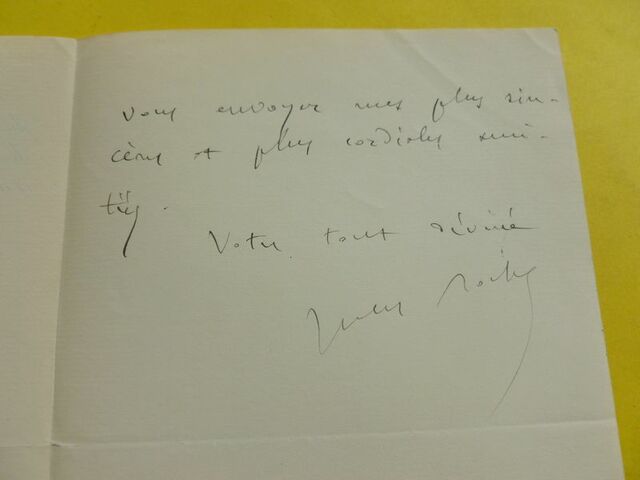 vous envoyer mes plus sin-
cères et plus cordiales ami-
tiés.
Votre tout dévoué
Jules